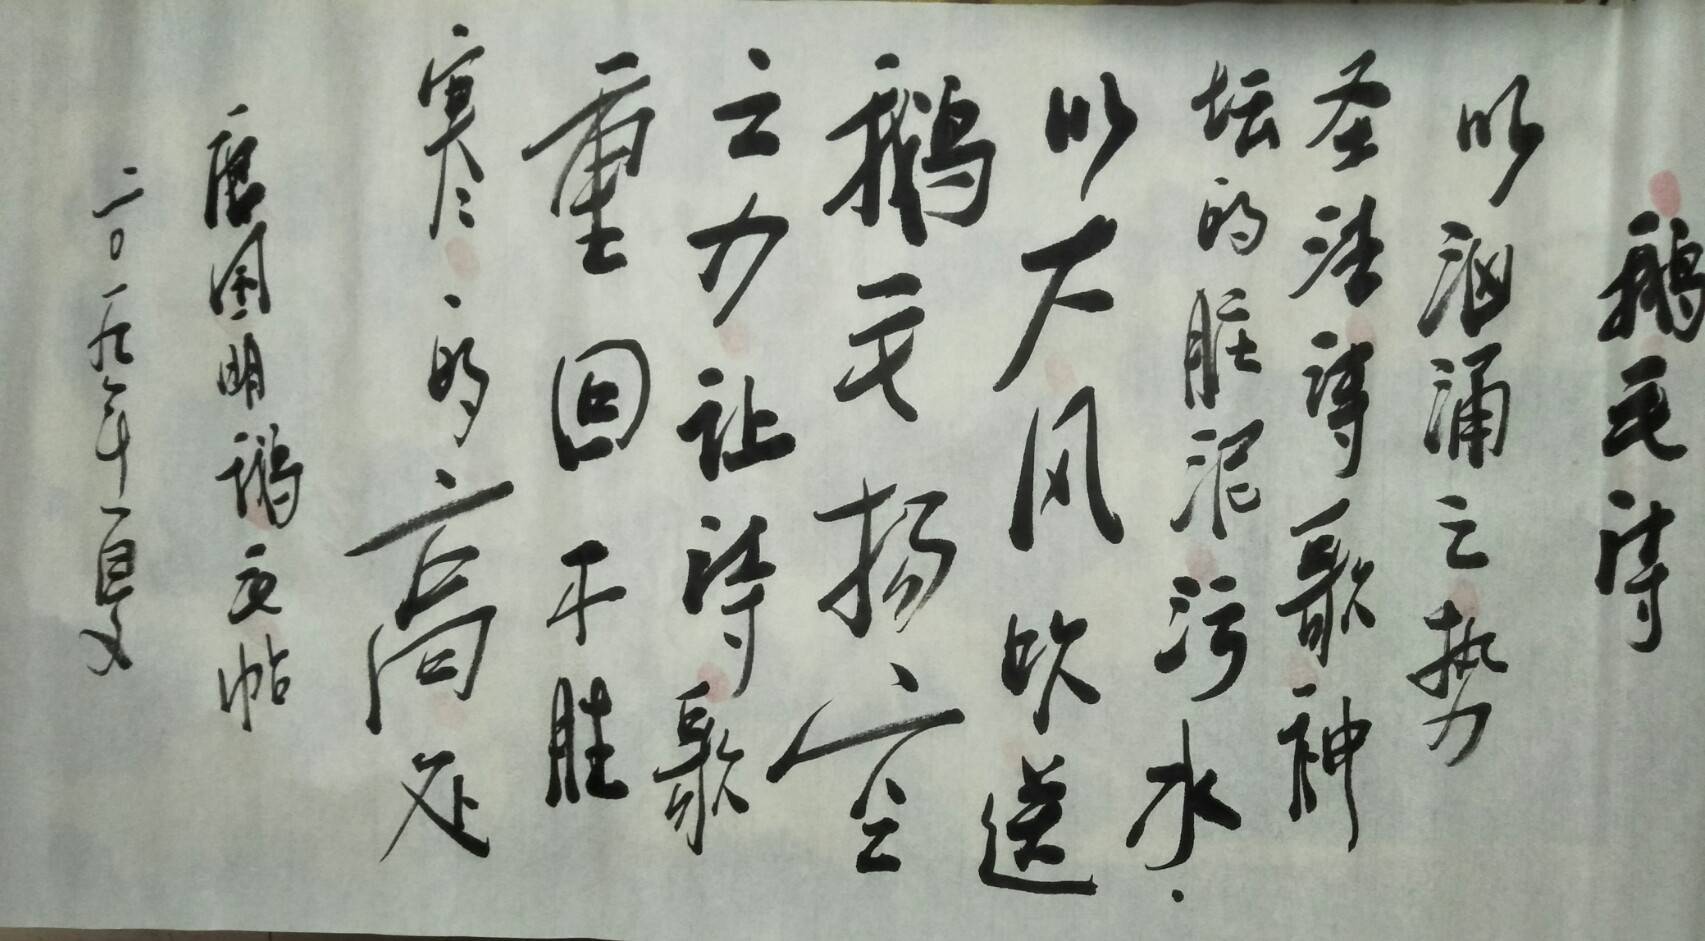 鹅毛诗
以汹涌之势
圣洁诗歌神
坛的脏泥污水.
以大风吹送
鹅毛扬空
之力让诗歌
重回不胜
寒的高处
唐国明鹅毛帖
二〇一九年一月